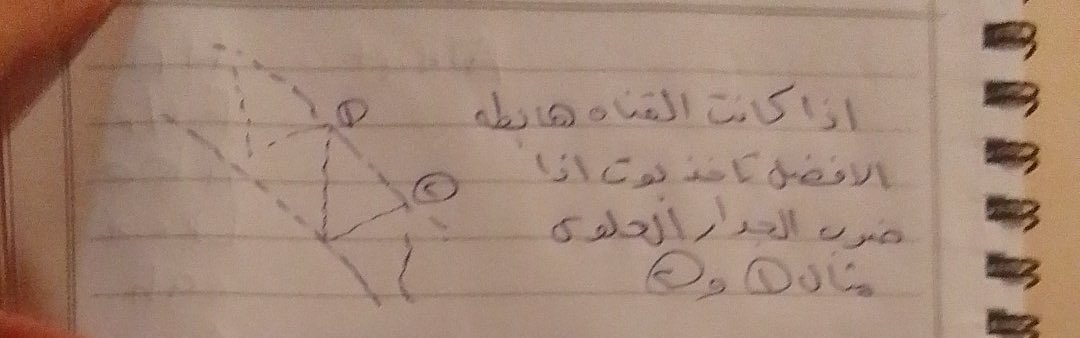 اذا كانت القناه هابطه
الافضل تاخذ بوت اذا
ضرب الجدار العلوى
مثال ① و ②
①
②